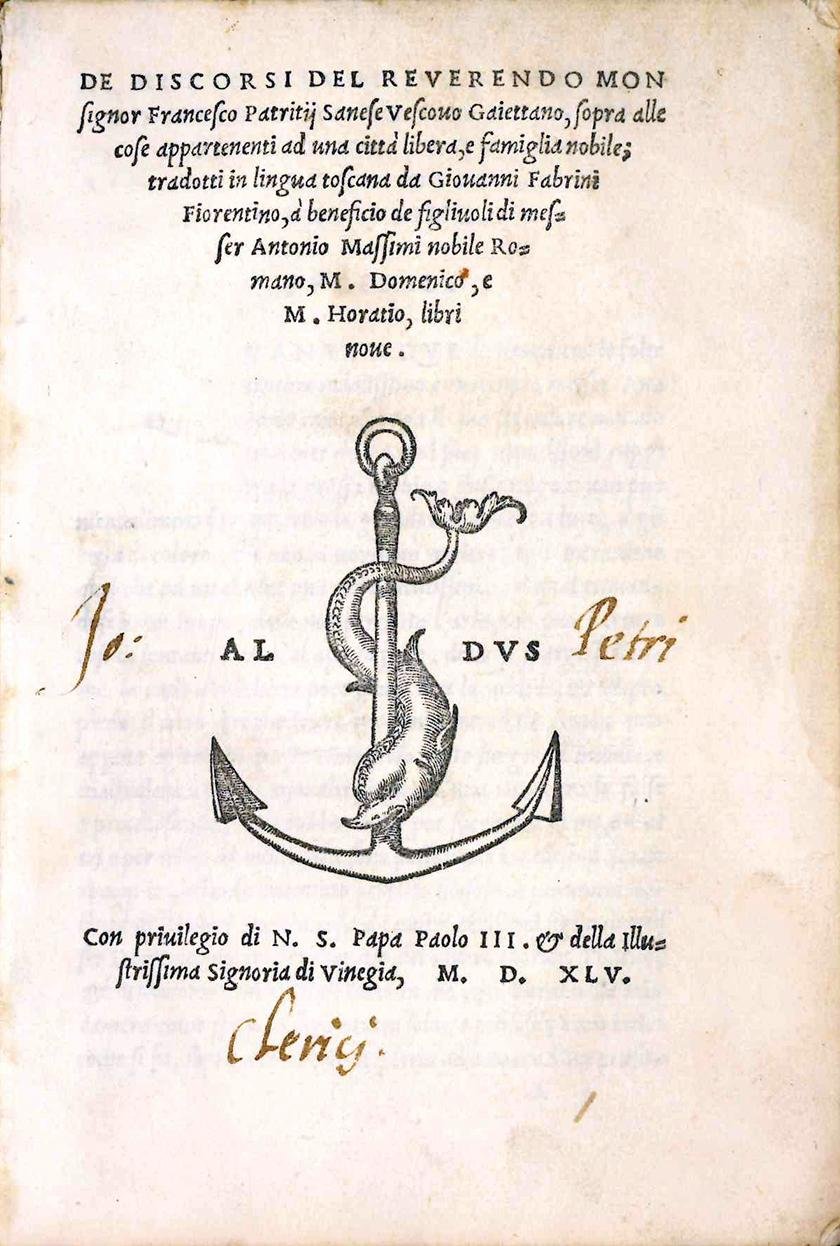 DE DISCORSI DEL REVERENDO MON
ſignor Franceſco Patritij Saneſe Veſcouo Gaiettano, ſopra alle
coſe appartenenti ad una città libera, e famiglia nobile;
tradotti in lingua toſcana da Giouanni Fabrini
Fiorentino, à beneficio de figliuoli di meſ=
ſer Antonio Maſſimi nobile Ro=
mano, M. Domenico, e
M. Horatio, libri
noue.
Jo: AL DVS Petri
Con priuilegio di N. S. Papa Paolo III. & della Illu=
ſtriſſima Signoria di Vinegia, M. D. XLV.
Clericj.